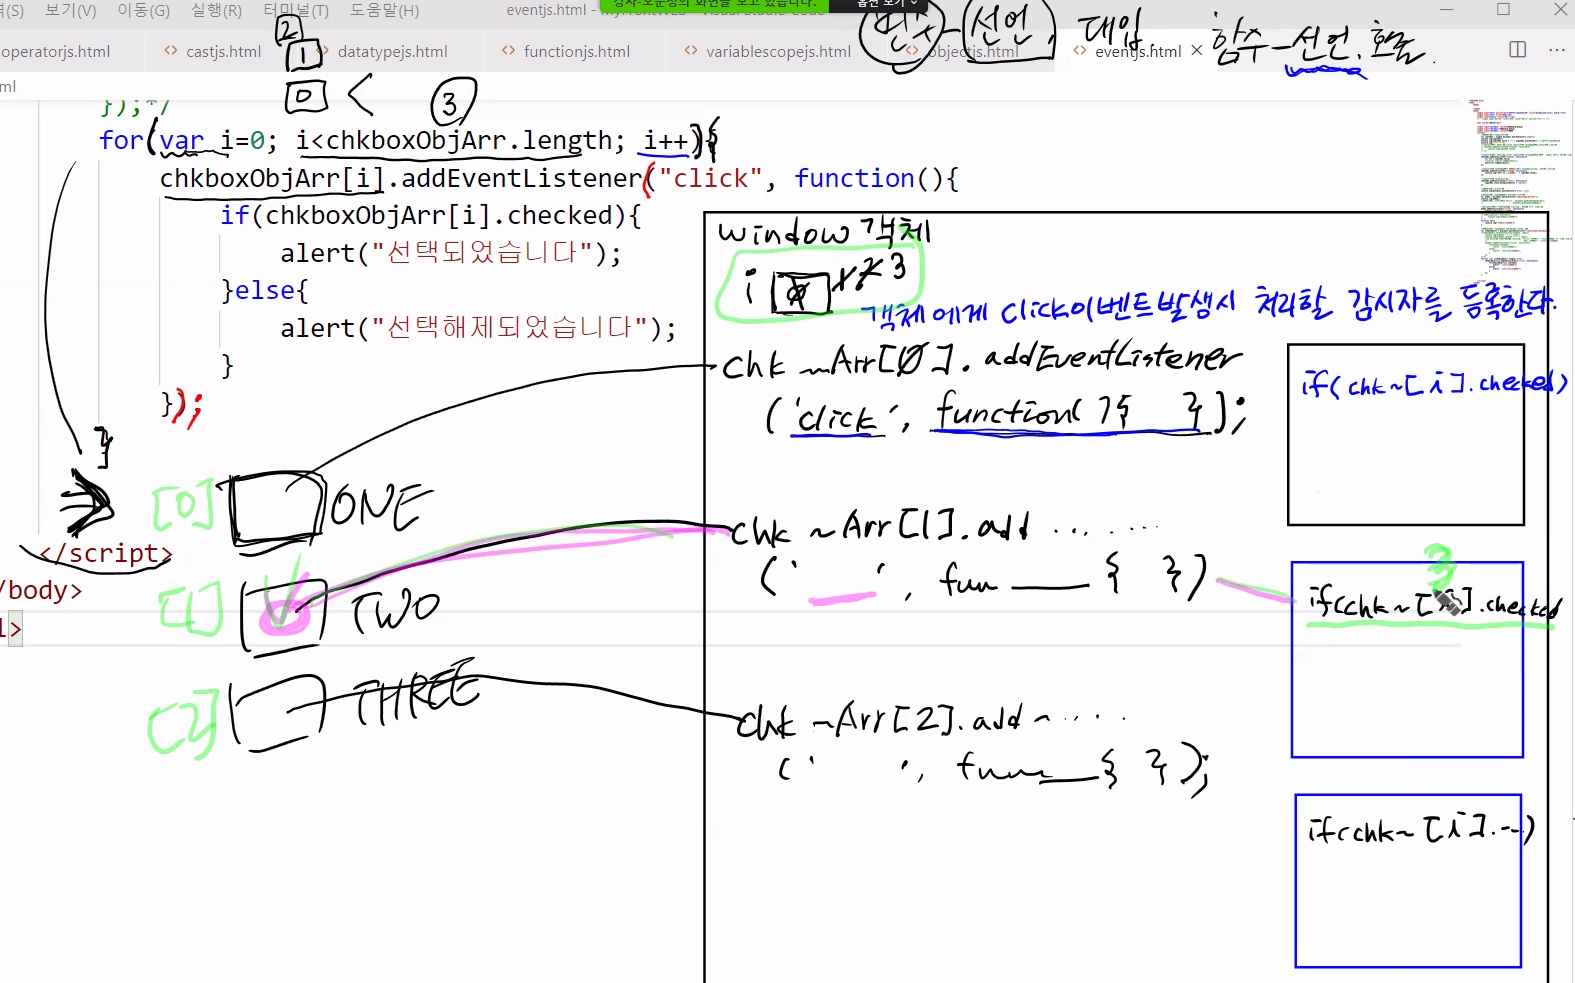 보기(V) 이동(G) 실행(R) 터미널(T) 도움말(H) eventjs.html
operatorjs.html castjs.html datatypejs.html functionjs.html variablescopejs.html objectjs.html eventjs.html
변수-선언, 대입, 함수-선언, 호출.
2
1
0 < 3
ml
});*/
for(var i=0; i<chkboxObjArr.length; i++){
chkboxObjArr[i].addEventListener("click", function(){
if(chkboxObjArr[i].checked){
alert("선택되었습니다");
}else{
alert("선택해제되었습니다");
}
});
}
</script>
/body>
l>
[0] ONE
[1] TWO
[2] THREE
window 객체
i 0 1 2 3
객체에게 click이벤트발생시 처리할 감시자를 등록한다.
chk ~Arr[0].addEventListener
('click', function( ){ });
chk ~Arr[1].add ........
(' ', fun ___ { })
chk ~Arr[2].add ~....
(' ', fun___{ });
if(chk~[i].checked)
3
if(chk~[i].checked
if(chk~[i].--)